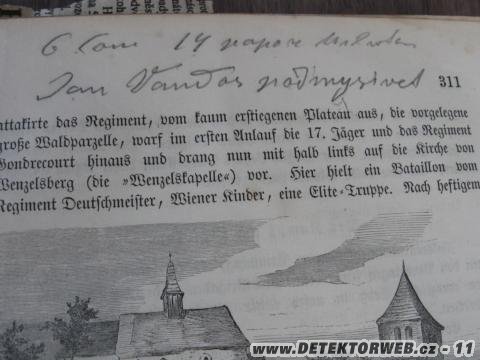 14
Jan
311
attakirte das Regiment, vom kaum erstiegenen Plateau aus, die vorgelegene
große Waldparzelle, warf im ersten Anlauf die 17. Jäger und das Regiment
Gondrecourt hinaus und drang nun mit halb links auf die Kirche von
Wenzelsberg (die »Wenzelskapelle«) vor. Hier hielt ein Bataillon vom
Regiment Deutschmeister, Wiener Kinder, eine Elite-Truppe. Nach heftigem
www.DETEKTORWEB.cz - 11